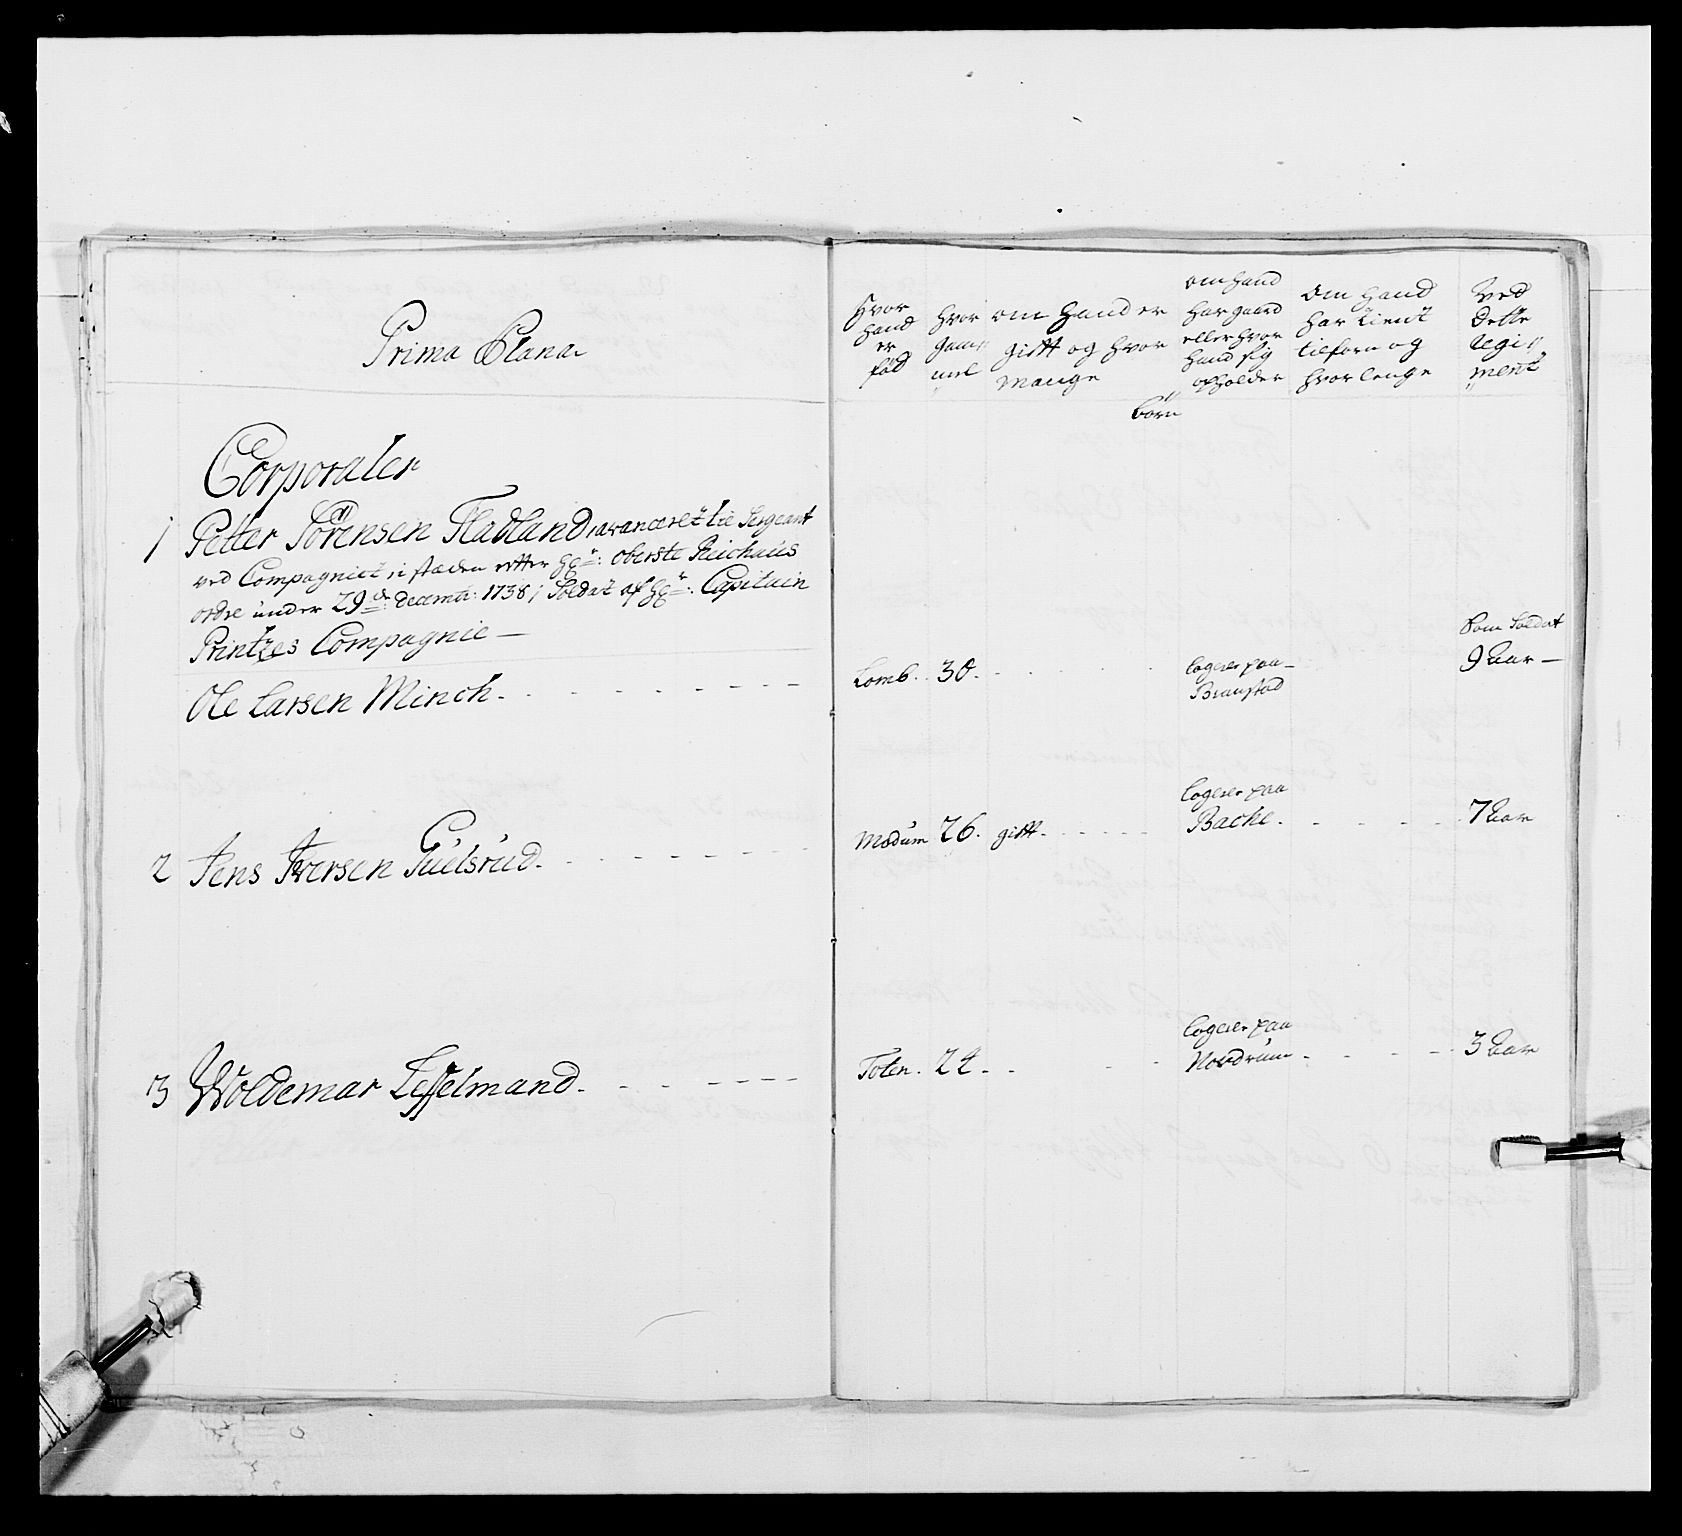 Prima Plana
Hvor hand er fød
hvor gam„ mel
om hand er gift og hvor mange börn
om hand har gaard eller hvor hand sig opholder
Om hand har tient tilforn og hvor lenge
Ved dette Regi„ ment
Corporaler
1 Petter Sörensen Fladland, avanceret til Sergeant
ved Compagniet i stæden efter Hr: Oberste Reichaus
ordre under 29de: decembr: 1738, Soldat af Hr: Capitain
Printzes Compagnie —
Som Soldat
Ole Larsen Minch. Lomb. 30. logerer paa Branstad 9 Aar —
2 Jens Iversen Guulsrud. Modum 26. gift. logerer paa Backe. 7 Aar
3 Woldemar Lesselmand. Toten. 24. logerer paa Nordrum. 3 Aar